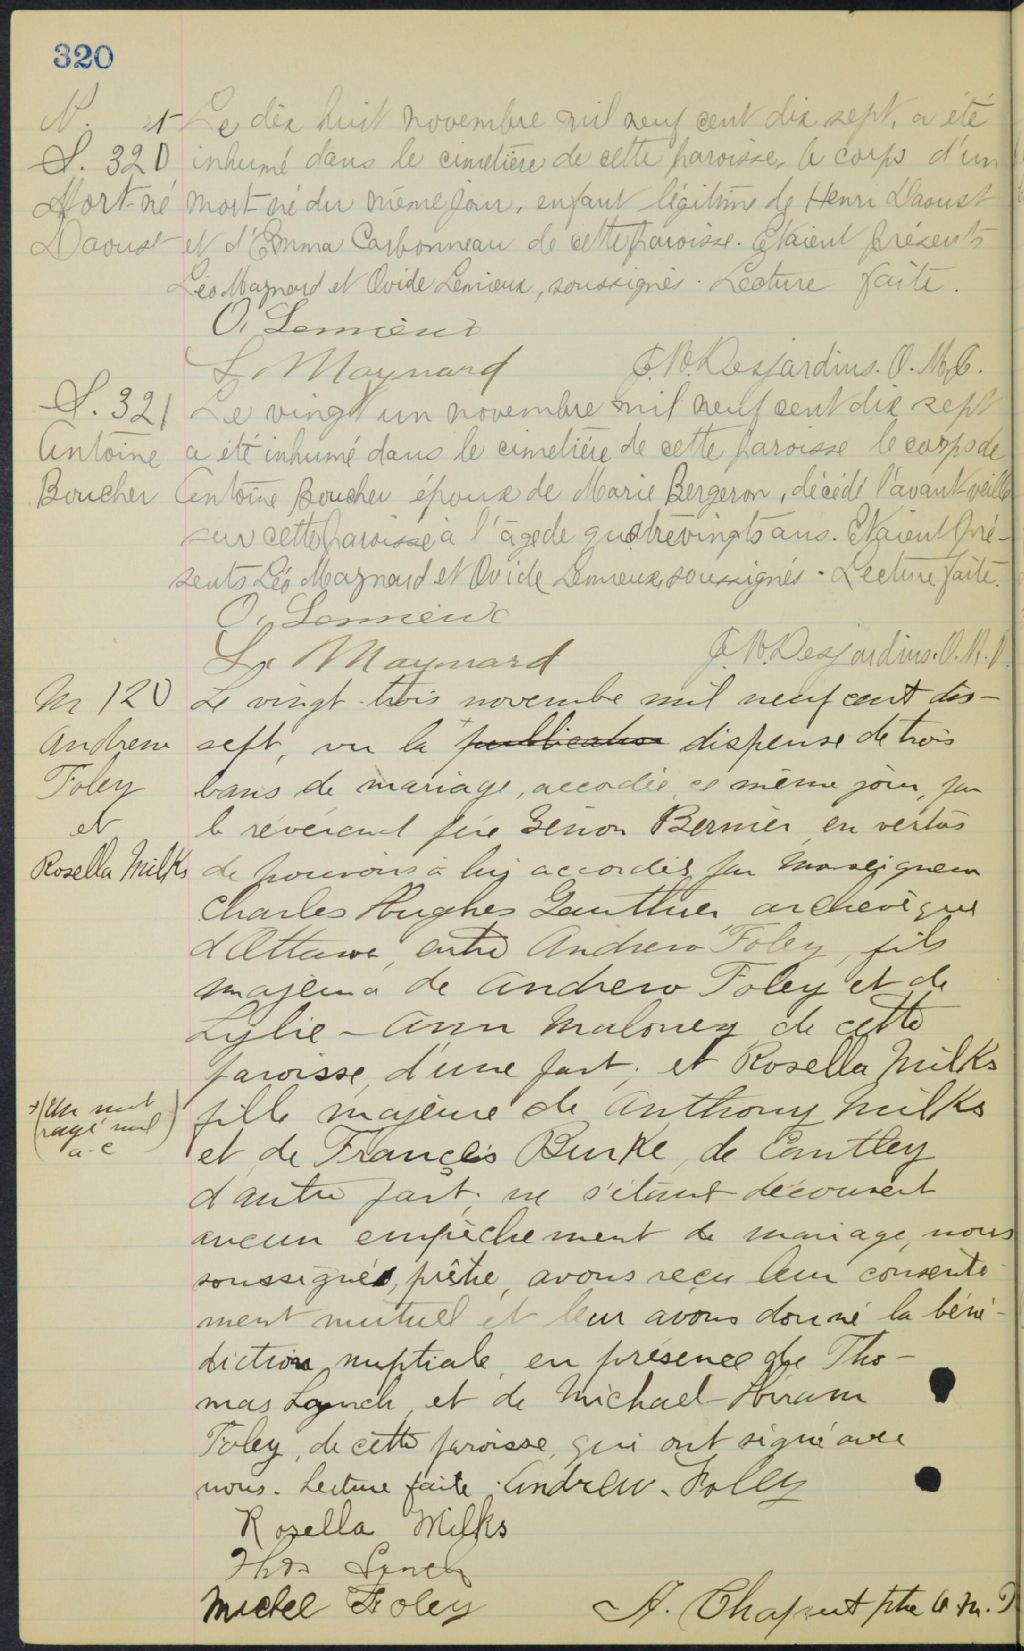 320
N. et
S. 320
Mort-né
Daoust
Le dix huit novembre mil neuf cent dix sept, a été
inhumé dans le cimetière de cette paroisse, le corps d'un
mort-né du même jour, enfant légitime de Henri Daoust
et d'Emma Carbonneau de cette paroisse. Etaient présents
Léo Maynard et Ovide Lemieux, soussignés. Lecture faite.
O. Lemieux
L. Maynard J. Desjardins. O.M.I.
S. 321
Antoine
Boucher
Le vingt un novembre mil neuf cent dix sept
a été inhumé dans le cimetière de cette paroisse le corps de
Antoine Boucher époux de Marie Bergeron, décédé l'avant-veille
sur cette paroisse à l'âge de quatrevingts ans. Etaient pré-
sents Léo Maynard et Ovide Lemieux soussignés. Lecture faite.
O. Lemieux
L. Maynard J. Desjardins. O.M.I.
M 120
Andrew
Foley
et
Rosella Milks
Le vingt-trois novembre mil neuf cent dix-
sept, vu la + publication dispense de trois
bans de mariage, accordée ce même jour, par
le révérend père Zénon Bernier en vertus
de pouvoirs à lui accordés par Monseigneur
Charles Hughes Gauthier archevêque
d'Ottawa, entre Andrew Foley, fils
majeur de Andrew Foley et de
Lylie-Ann Maloney de cette
paroisse, d'une part, et Rosella Milks
+ (Un mot
rayé nul
a.c)
fille majeure de Anthony Milks
et de Françès Burke, de Cantley
d'autre part, ne s'étant découvert
aucun empêchement de mariage, nous
soussigné, prêtre, avons reçu leur consente-
ment mutuel et leur avons donné la béné-
diction nuptiale en présence de Tho-
mas Lynch, et de Michael Hiram
Foley, de cette paroisse, qui ont signé avec
nous. Lecture faite. Andrew. Foley
Rosella Milks
Thos Lynch
Michel Foley A. Chaput ptre O.M.I